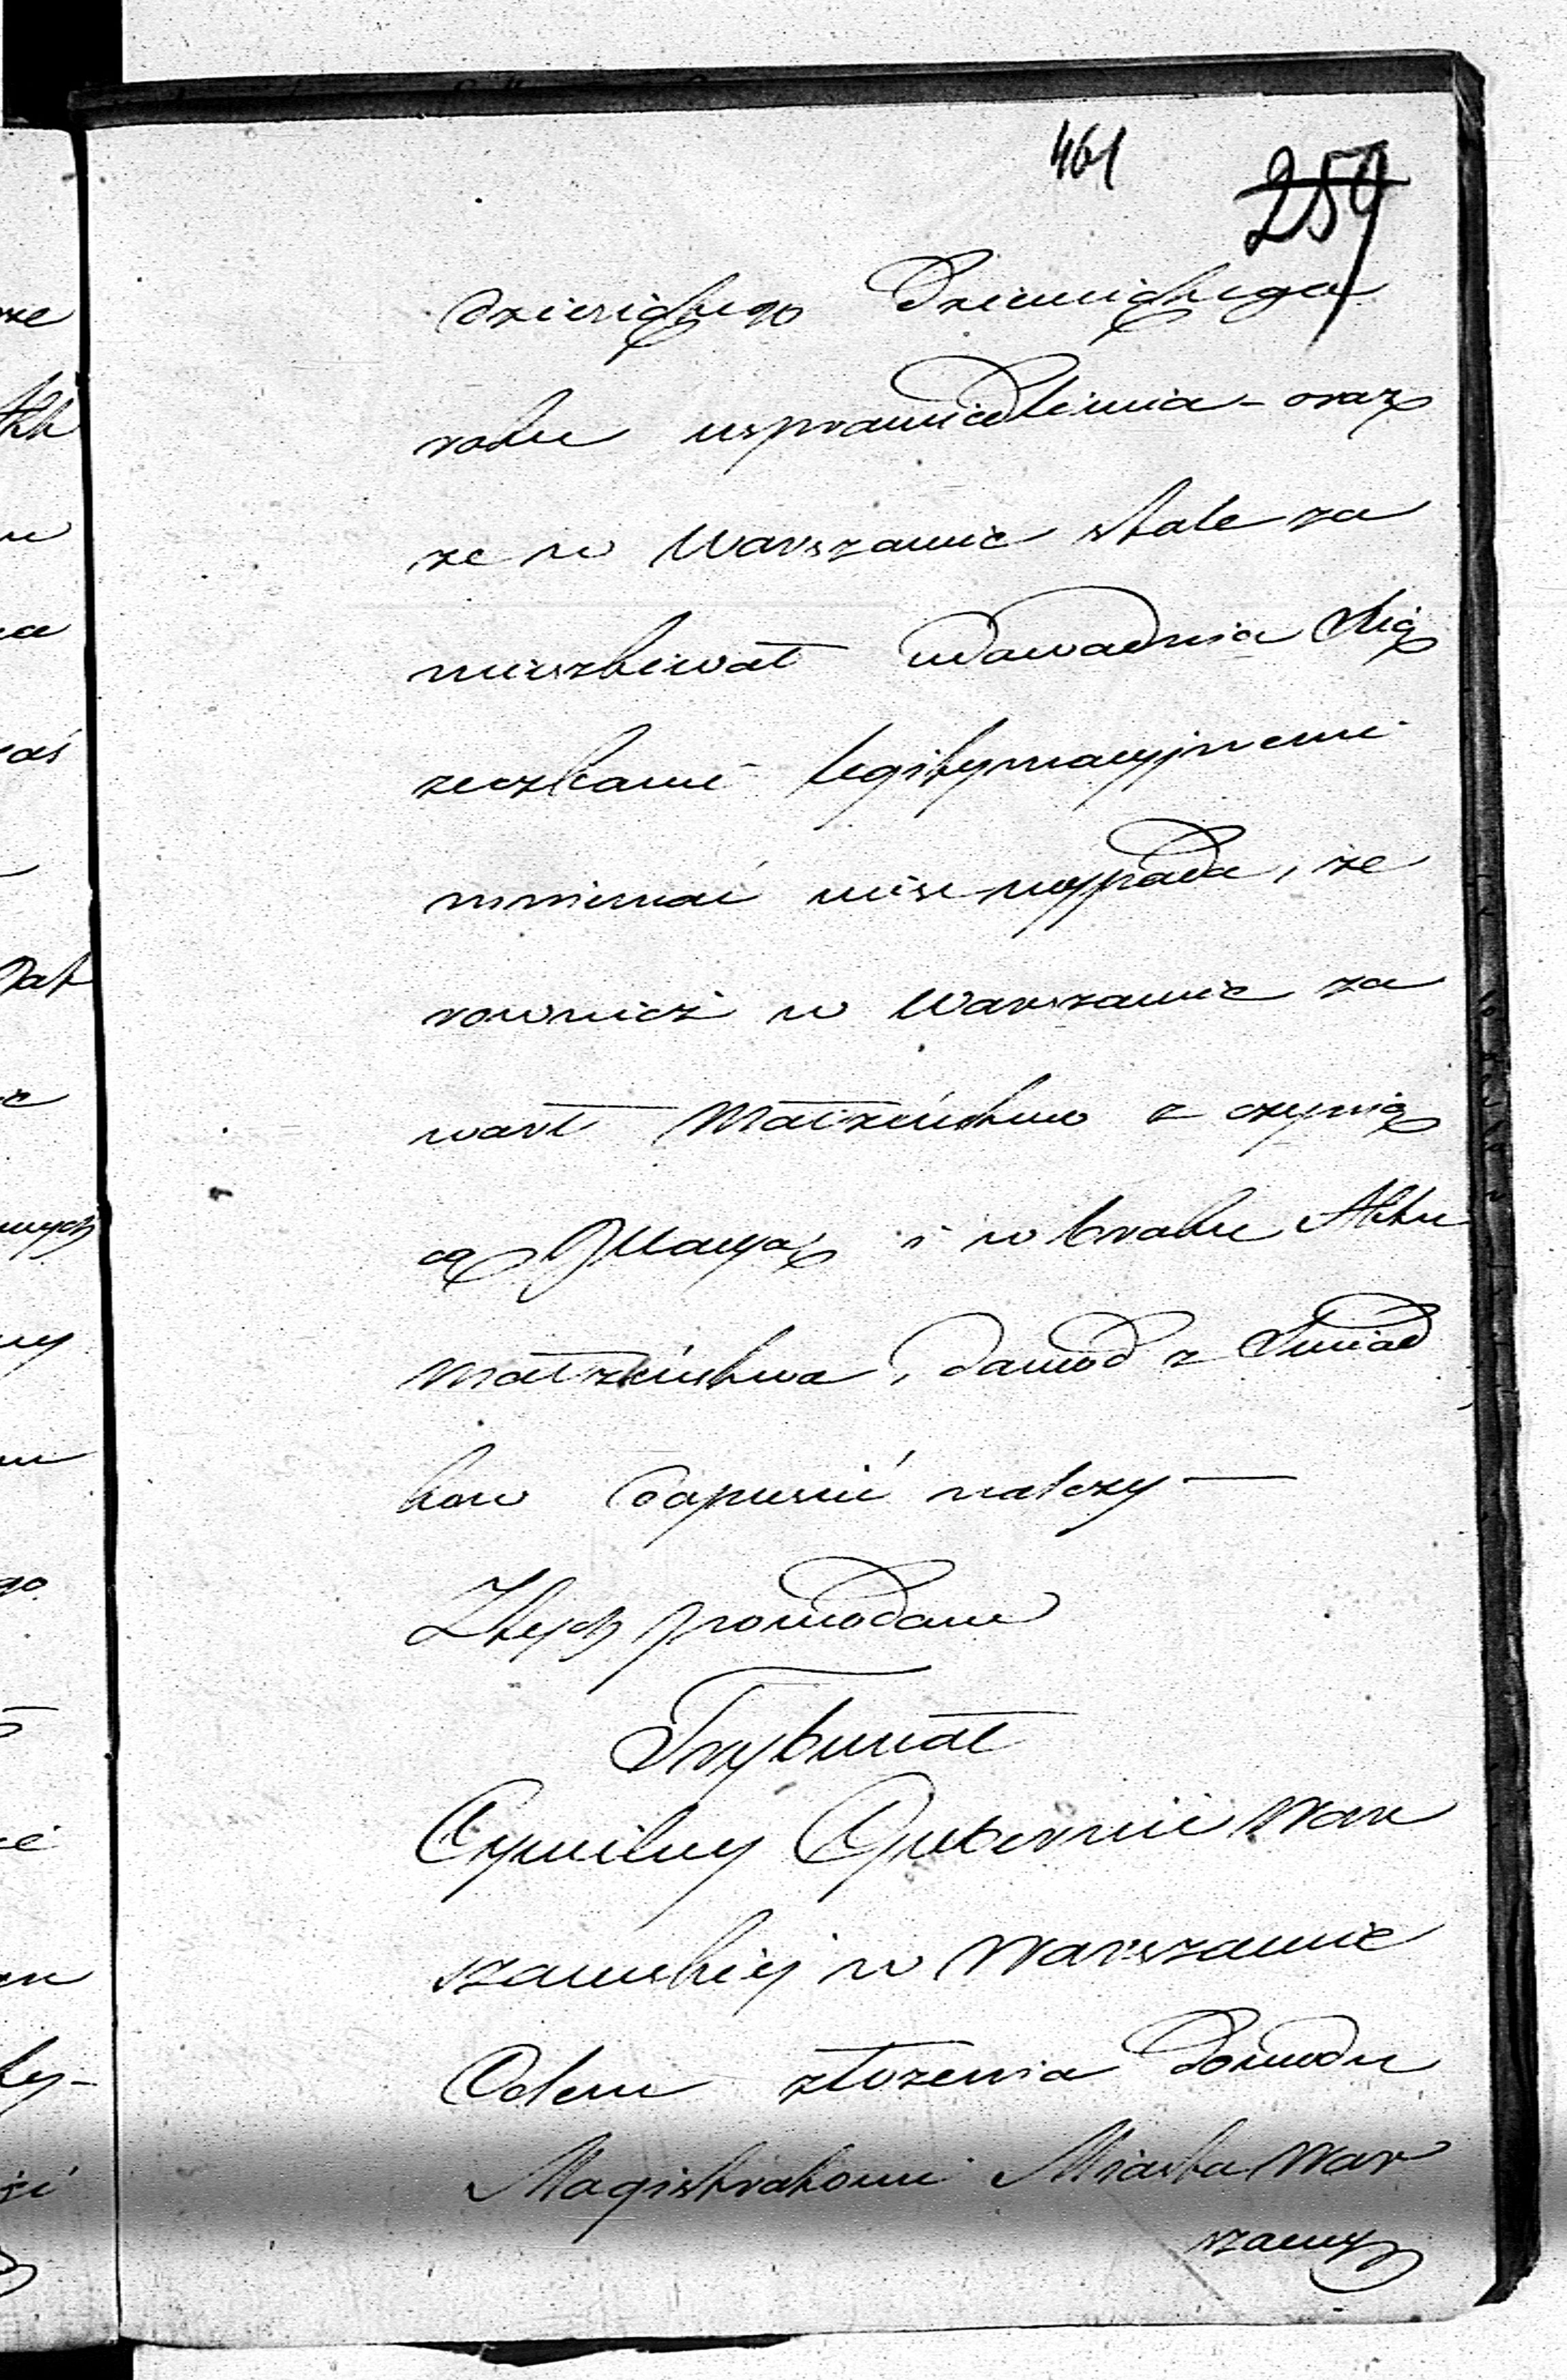 461 259
dziesiątego Dziewiątego
roku usprawiedliwia – oraz
że w Warszawie stale za
mieszkiwał udowadnia się
żeczkami legitymacyjnemi
wnieść wypada, że
rownież w Warszawie za
warł Małżeństwo z czynią
cą i w braku Aktu
Małżeństwa, dowod z Swiad
kow dopuscić należy —
Z tych powodow
Trybunał
Cywilny Gubernii War
szawskiej w Warszawie
Celem złożenia Dowodu
Magistratowi Miasta War
szawy